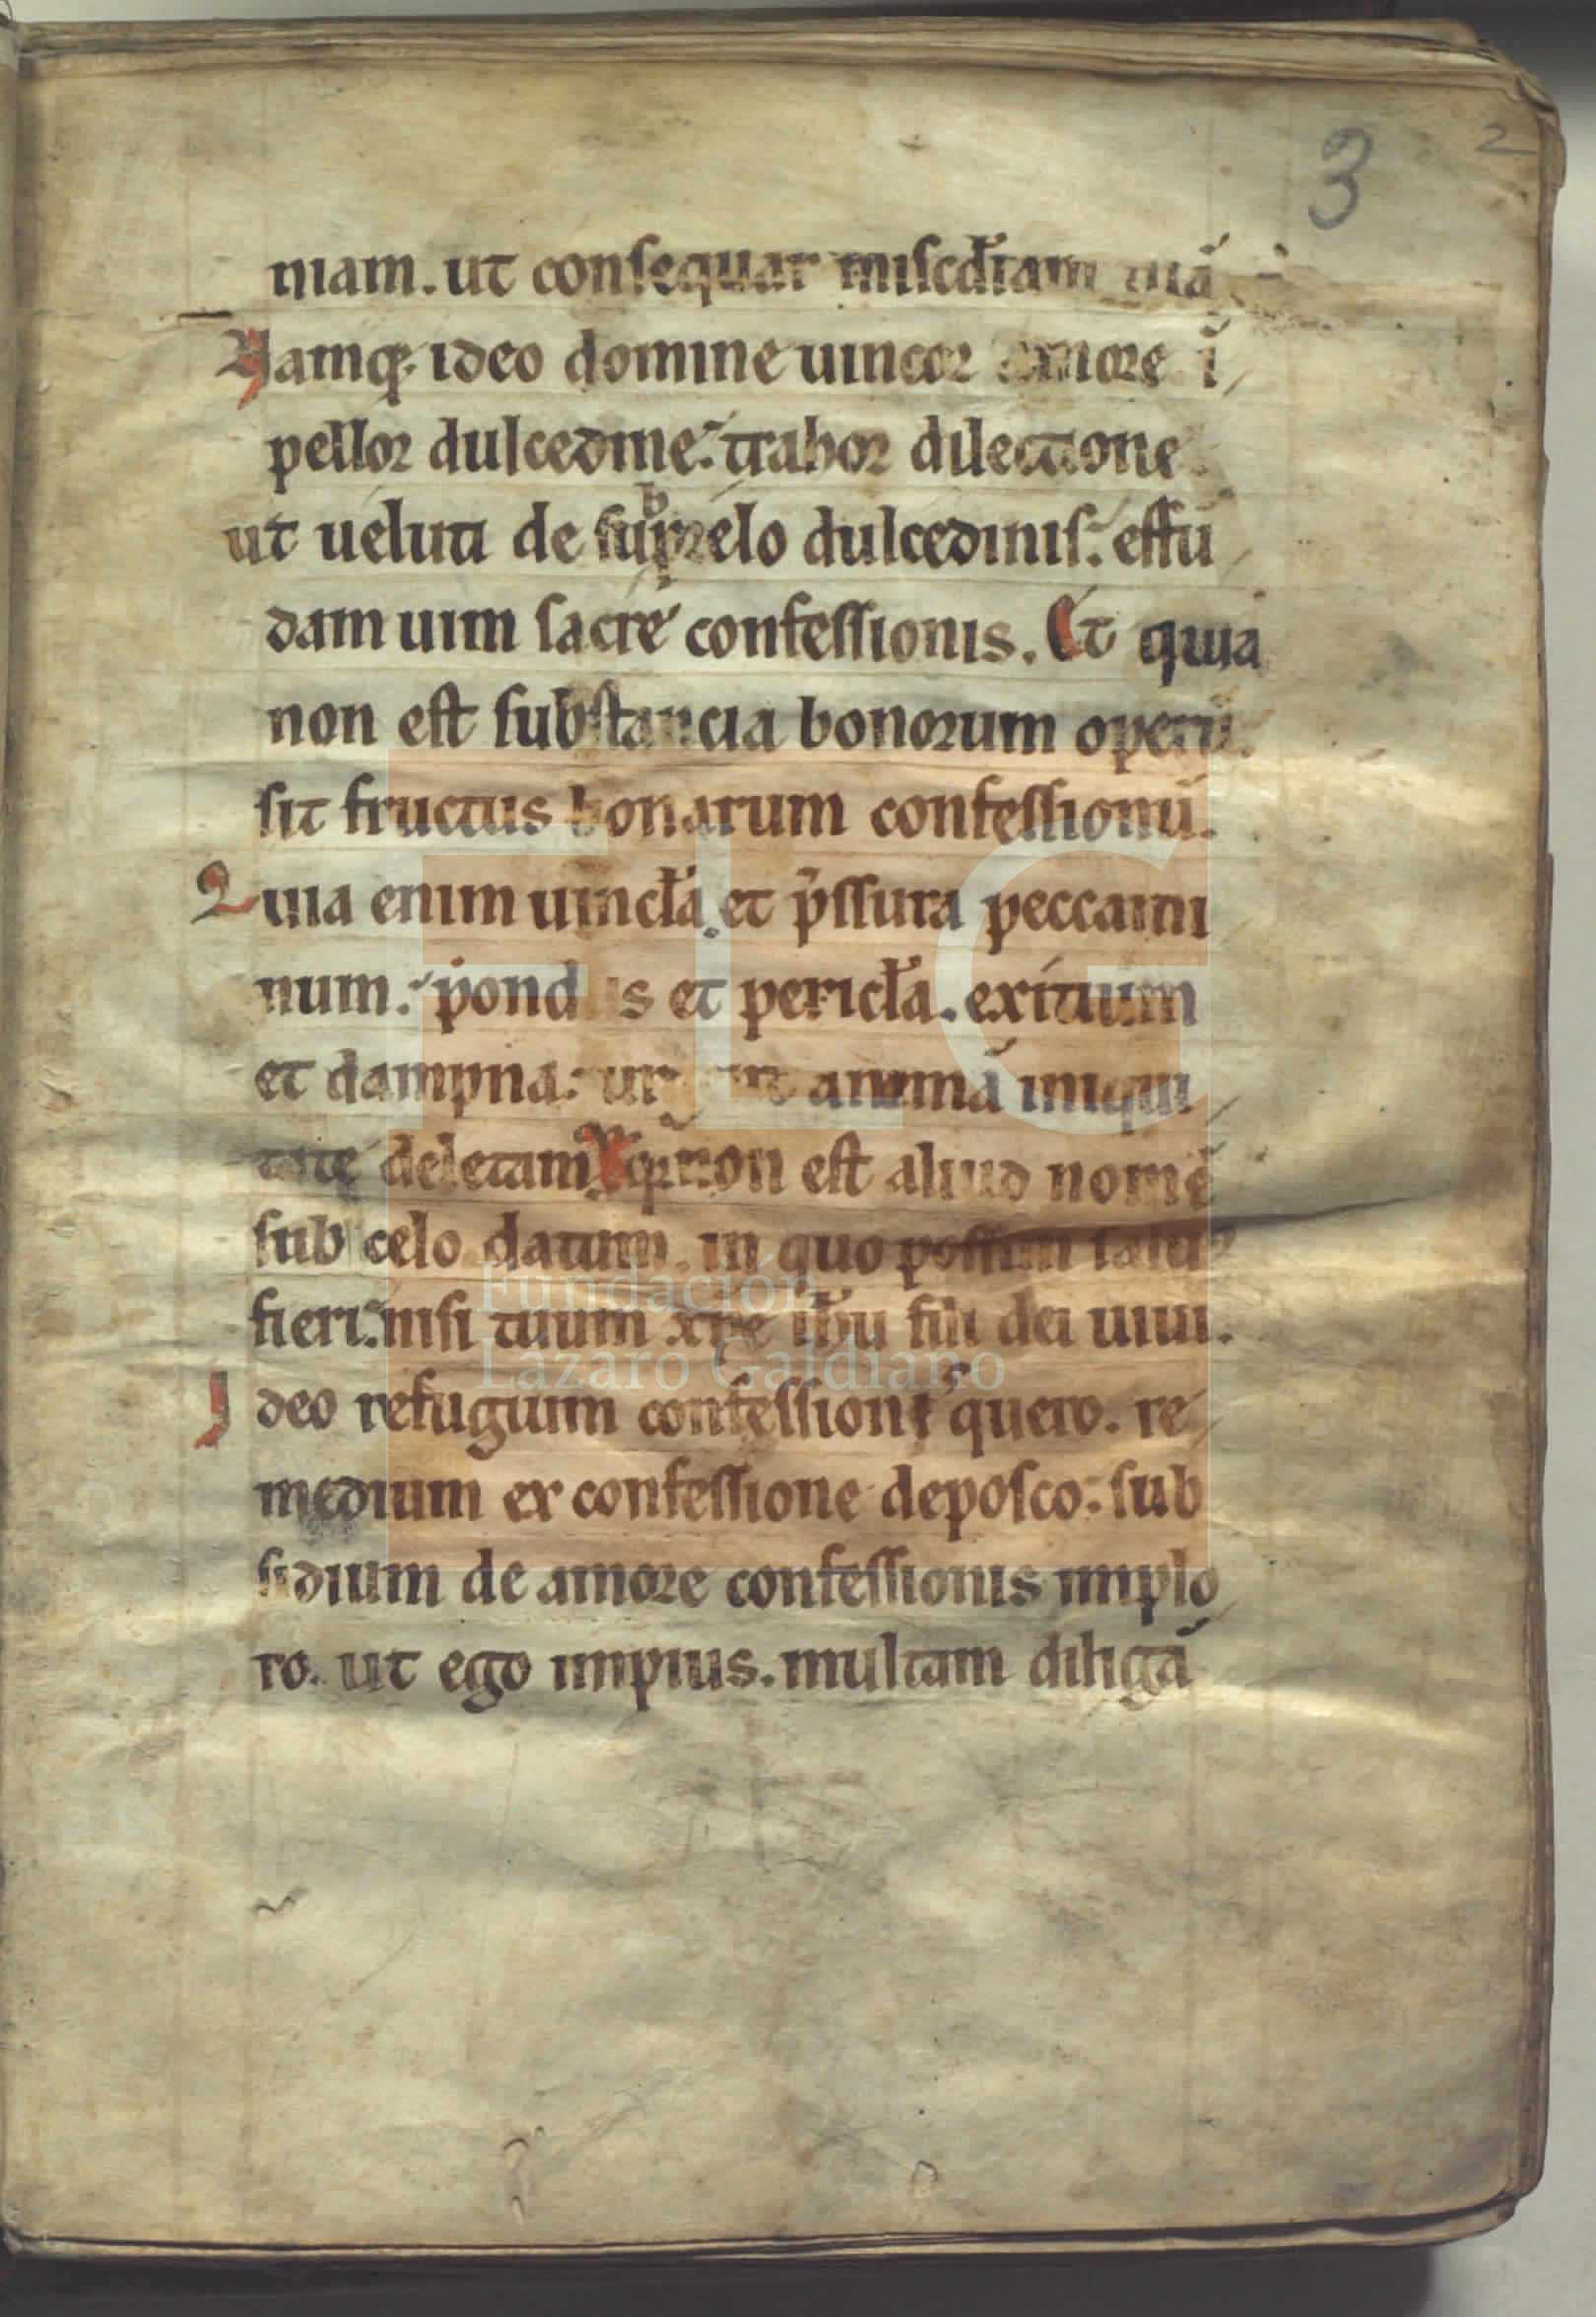 3 2
niam. ut consequar miscd̅iam tuā
Namq; ideo domine uincor amore ī
pellor dulcedine. trahor dilectione
ut ueluti de dulcedinis. effū
dam uim sacre confessionis. Et quia
non est substancia bonorum operū.
sit fructus bonarum confessionū.
Quia enim uincl̅a. et p̅ssura peccami
num. pondus et pericl̅a. exitium
et dampna. urgent animā iniqui
tate deletam. non est aliud nomē
sub celo datum. in quo possim saluus
fieri. nisi tuum xp̅e ih̅u fili dei uiui.
Ideo refugium confessionis quero. re
medium ex confessione deposco. sub
sidium de amore confessionis implo
ro. ut ego impius. multam diligā
FLG
Fundación
Lázaro Galdiano